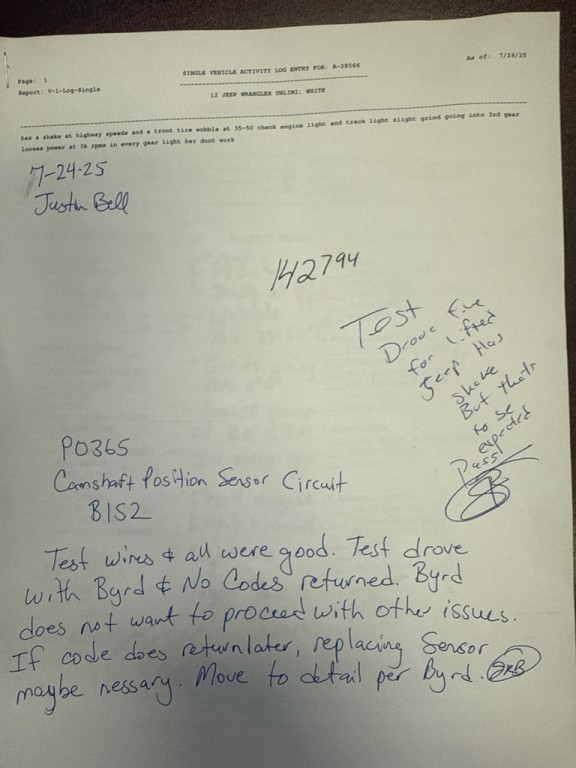 Page: 1
SINGLE VEHICLE ACTIVITY LOG ENTRY FOR: R-28566
As of: 7/24/25
Report: V-i-Log-Single
12 JEEP WRANGLER UNLIMI; WHITE
has a shake at highway speeds and a front tire wobble at 35-50 check engine light and track light slight grind going into 3rd gear
looses power at 3k rpms in every gear light bar dont work
7-24-25
Justin Bell
142794
Test
Drove fine
for lifted
Jeep Has
shake
But thats
to be
expected
Pass
P0365
Camshaft Position Sensor Circuit
B1S2
Test wires & all were good. Test drove
with Byrd & No Codes returned. Byrd
does not want to proceed with other issues.
If code does return later, replacing Sensor
maybe nessary. Move to detail per Byrd.